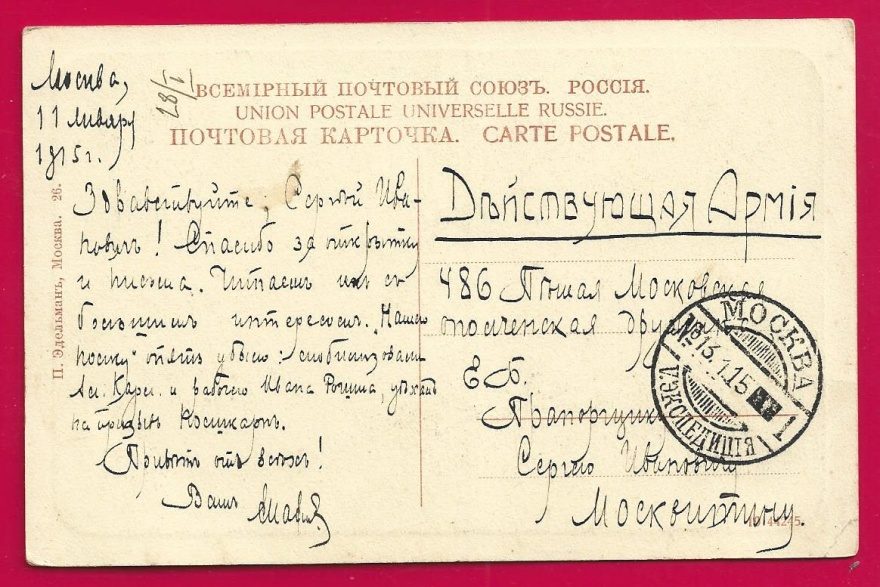 Москва,
11 январ
1915 г.
28/I
ВСЕМІРНЫЙ ПОЧТОВЫЙ СОЮЗЪ. РОССІЯ.
UNION POSTALE UNIVERSELLE RUSSIE.
ПОЧТОВАЯ КАРТОЧКА. CARTE POSTALE.
П. Эдельманъ, Москва. 26.
Здравствуйте, Сергѣй Ива-
новичъ! Спасибо за открытку
и письма. Читаемъ ихъ съ
большимъ интересомъ. Нашего
полку опять убыло: мобилизовали
и рабочего Ивана
на призывъ
Привѣтъ отъ всѣхъ!
Вашъ
Дѣйствующая Армія
486 Пѣшая Московская
ополченская дружина
Е. Б.
Прапорщику
Сергѣю Ивановичу
Москвитину.
МОСКВА
13.1.15
1
ЭКСПЕДИЦІЯ